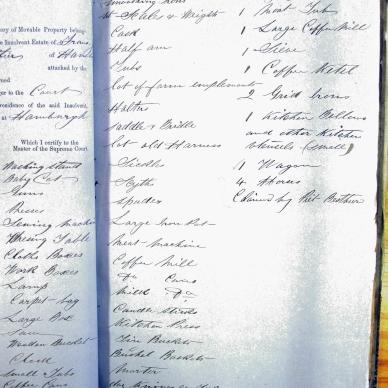 ory of Movable Property being
e Insolvent Estate of Frans
of Hamb
attached by the
ned
ger to the Court
residence of the said Insolvent,
at Hamburgh
Which I certify to the
Master of the Supreme Court.
Washing stand
Baby Cot
Guns
Presses
Sewing machine
Dressing Table
Cloths Boxes
Work Boxes
Lamp
Carpet-bag
Large Box
Saw
Wooden Bucket
Chest
Small Tubs
Coffee Cans
Scales & Weights
Cask
Half aum
Tubs
Lot of farm emplements
Halters
Saddle & Bridle
Lot old Harness
Sickles
Scyth
Spades
Large Iron Pot
Meat-machine
Coffee Mill
Do Cans
Milk Do
Candle sticks
Kitchen Press
Fire Buckets
Bushel Baskets
1 Meat Tub
1 Large Coffee Mill
1 Sieve
1 Coffee Ketel
2 Grid Irons
1 Kitchen Bellows
and other Kitchen
utensils (small)
1 Wagon
4 Horses
Claimed by Brother